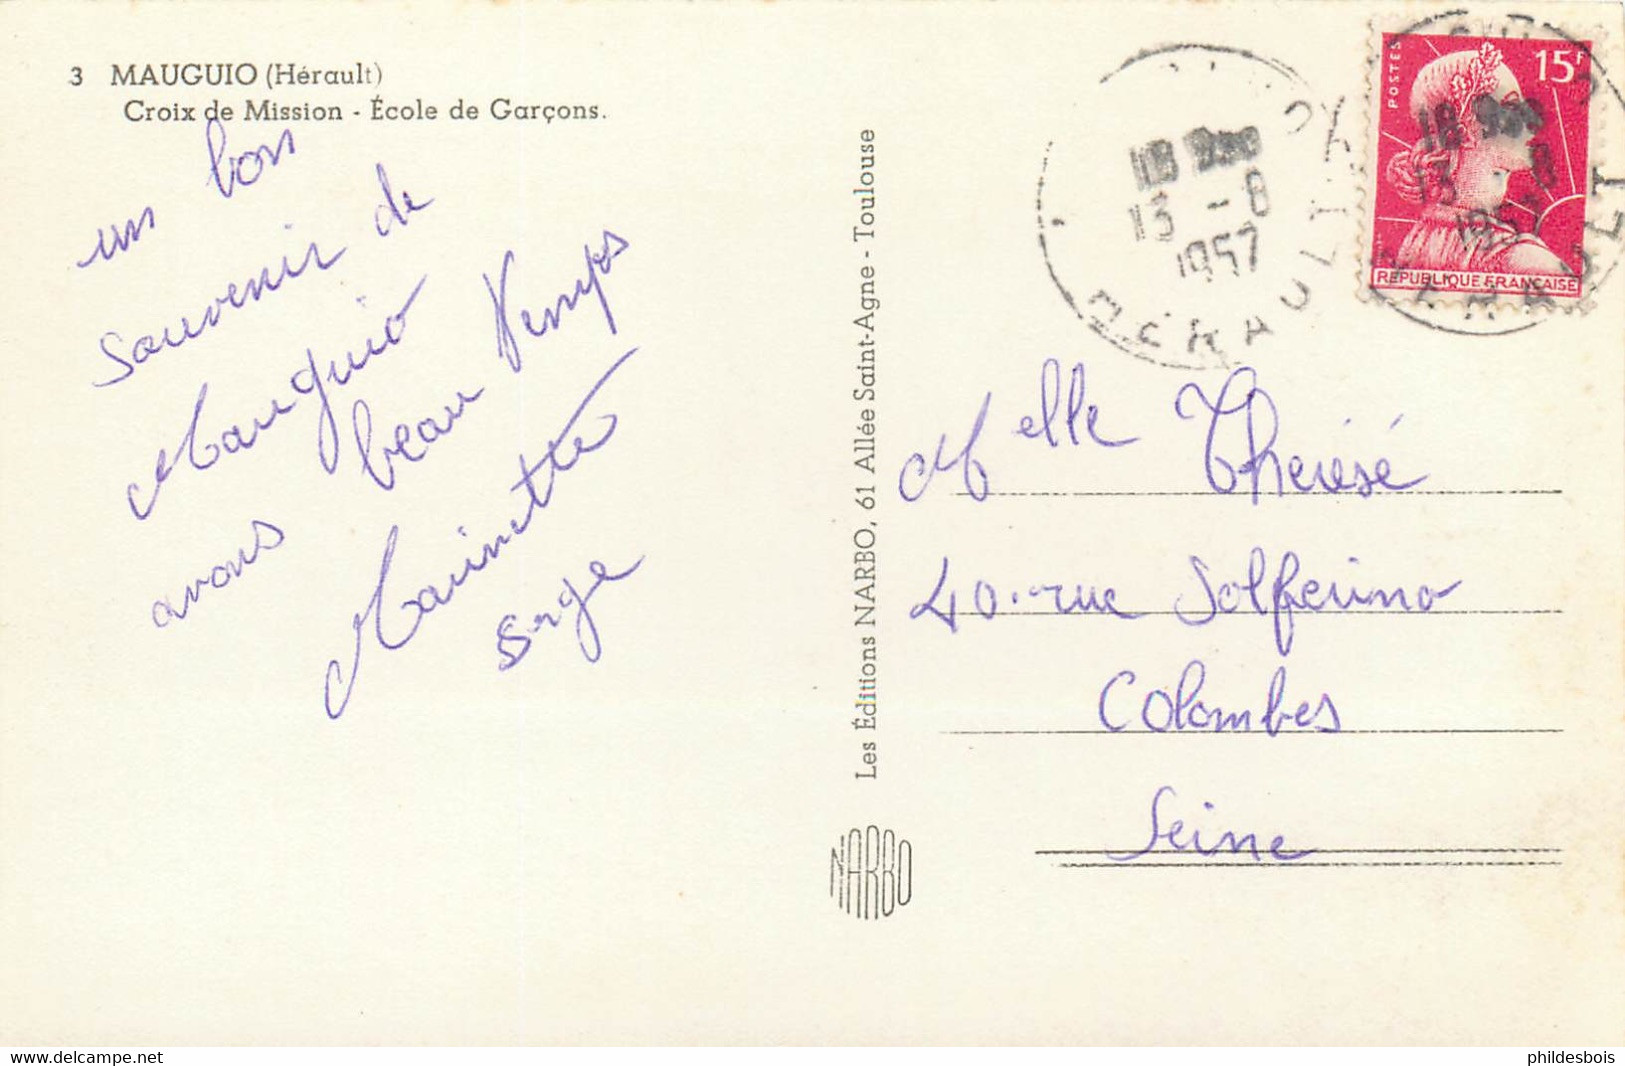 3 MAUGUIO (Hérault)
Croix de Mission - École de Garçons.
un bon
souvenir de
Mauguio
avons beau temps
Marinette
Serge
Les Éditions NARBO, 61 Allée Saint-Agne - Toulouse
NARBO
POSTES
15F
REPUBLIQUE FRANÇAISE
18
13 - 8
1957
HÉRAULT
18
13 - 8
1957
HÉRAULT
Melle Thérésé
40. rue Solferino
Colombes
Seine
www.delcampe.net
phildesbois